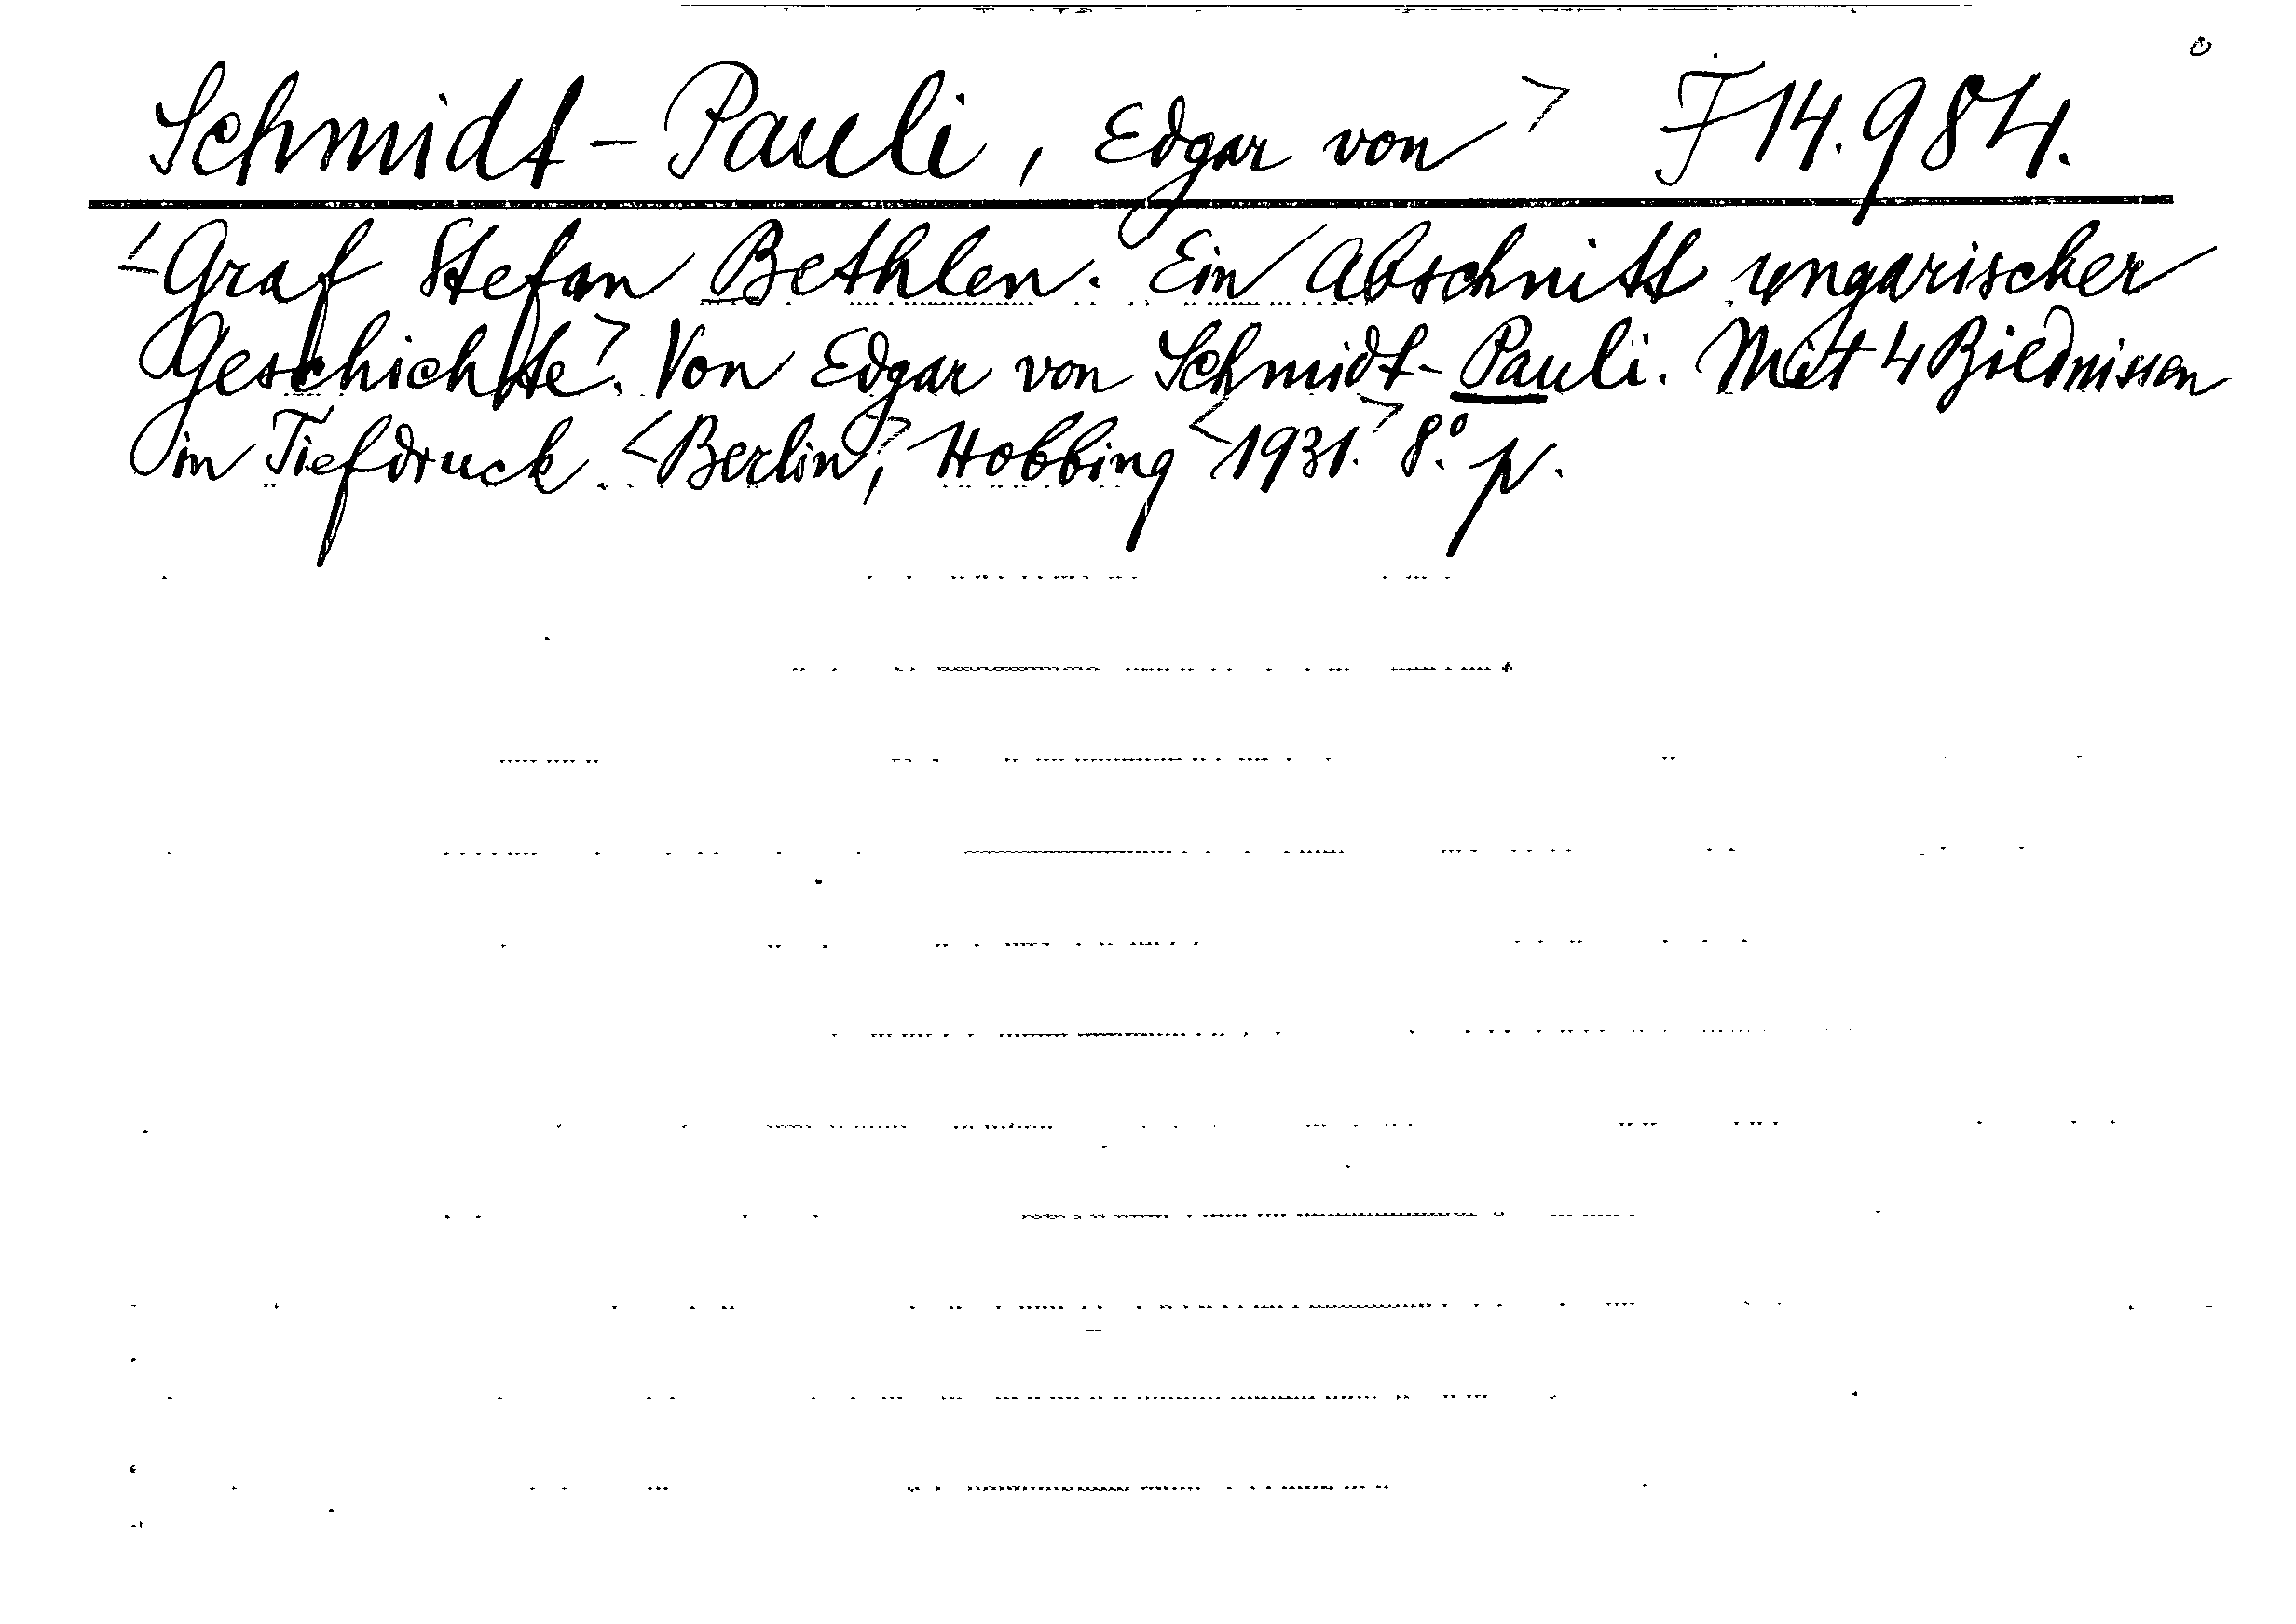 Schmidt-Pauli, Edgar von> F 14.984.
<Graf Stefan Bethlen. Ein Abschnitt ungarischer
Geschichte>. Von Edgar von Schmidt-Pauli. Mit 4 Bildnissen
in Tiefdruck. <Berlin>, Hobbing <1931.> 8.° p.